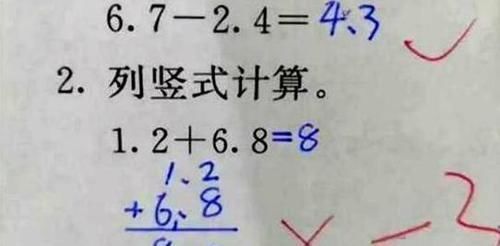 6.7－2.4＝4.3
2. 列竖式计算。
1.2＋6.8=8
1.2
+6.8
-2